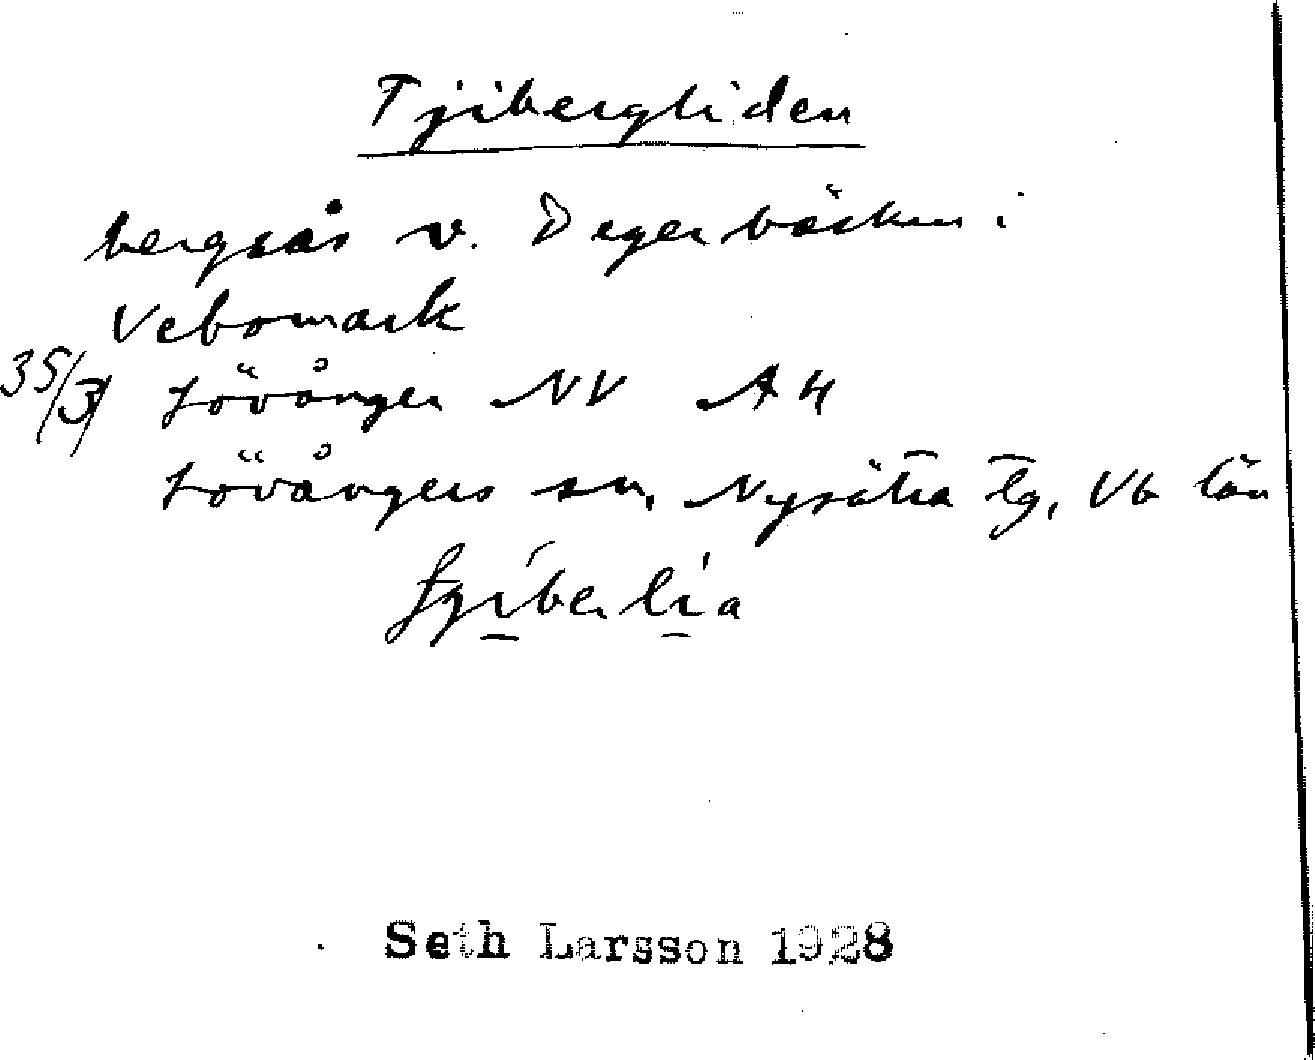 Tjibergliden
bergsås v. Degerbäcken i
Vebomark
35/3 Lövånger NV A4
Lövångers sn, Nysätra tg, Vb län
Seth Larsson 1928